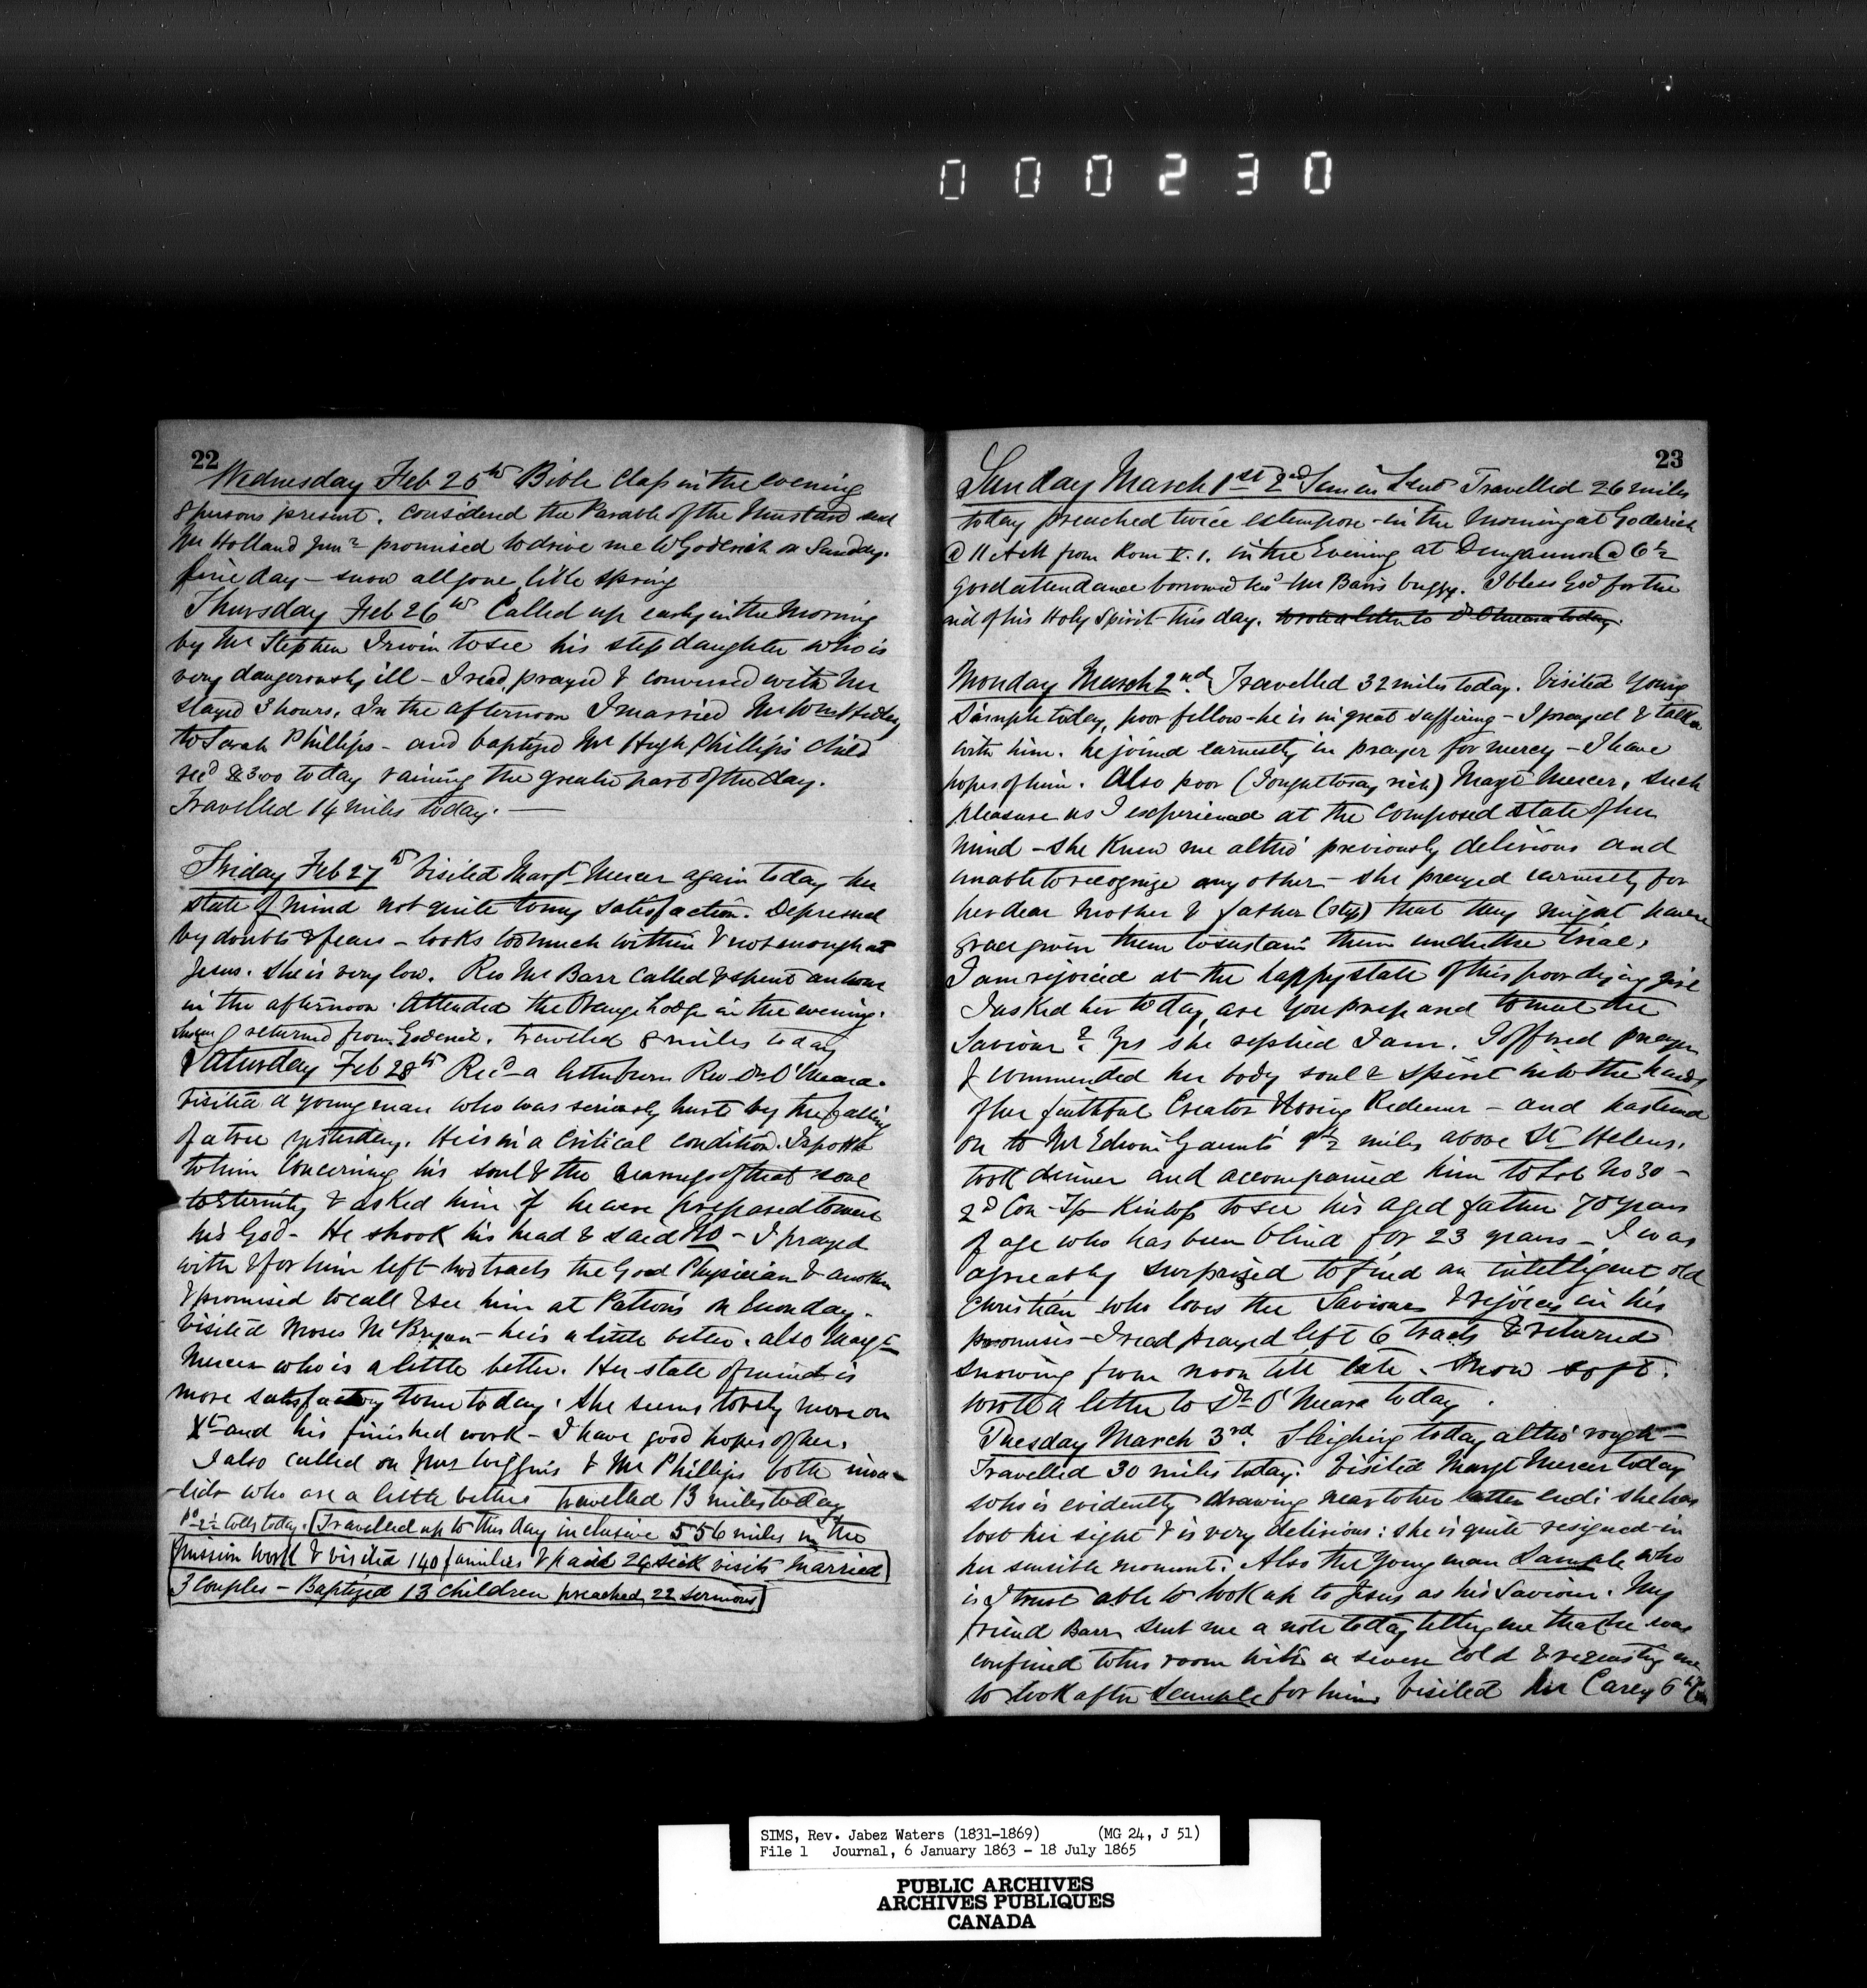 000230
22
Wednesday Feb 25th Bible Class in the evening
8 persons present. Considered the Parable of the Mustard seed
Mr Holland Junr promised to drive me to Goderich on Sunday.
fine day - snow all gone like spring
Thursday Feb 26th Called up early in the Morning
by Mr Stephen Irwin to see his step daughter who is
very dangerously ill - I read, prayed & conversed with her
stayed 3 hours. In the afternoon I married Mr Wm
to Sarah Phillips - and baptized Mr Hugh Phillips child
recd $3.00 today raining the greater part of the day.
Travelled 14 miles today. —
Friday Feb 27th Visited Margt Mercer again today her
state of mind not quite to my satisfaction. Depressed
by doubts & fears - looks too much within & not enough at
Jesus. She is very low. Rev Mr Barr called & spent an hour
in the afternoon. Attended the Orange Lodge in the evening.
returned from Goderich. travelled 8 miles today
Saturday Feb 28th Recd a letter from Rev Dr O'Meara.
visited a young man who was seriously hurt by the falling
of a tree yesterday. He is in a critical condition. I spoke
to him concerning his soul & the of that soul
to Eternity & asked him if he were prepared to meet
his God - He shook his head & said No - I prayed
with & for him left two tracts the Good Physician & another
& promised to call & see him at Patton's on Monday.
Visited Moses McBryan - he is a little better. also Margt
Mercer who is a little better. Her state of mind is
more satisfactory to me today. She seems to rely more on
Xt and his finished work - I have good hopes of her.
I also called on Mrs Wiggins & Mr Phillips both inva-
-lids who are a little better travelled 13 miles today
tolls today. Travelled up to this day inclusive 556 miles in the
Mission work & visited 140 families & paid 24 sick visits married
3 Couples - Baptized 13 children preached 22 sermons
23
Sunday March 1st 2nd Sun in Lent Travelled 26 miles
today preached twice extempore - in the Morning at Goderich
@ 11 AM from Rom V.1. in the Evening at Dungannon @ 6½
good attendance borrowed Mr Barr's buggy. I bless God for the
aid of his Holy Spirit this day. wrote a letter to Dr O'Meara today.
Monday March 2nd. Travelled 32 miles today. Visited young
Sample today, poor fellow - he is in great suffering - I prayed & talked
with him. he joined earnestly in prayer for mercy - I have
hopes of him. Also poor (I ought to say rich) Margt Mercer, such
pleasure as I experienced at the composed state of her
mind - she knew me altho' previously delirious and
unable to recognize any other - she prayed earnestly for
her dear mother & father (step) that they might have
grace given them to sustain them under the trial.
I am rejoiced at the happy state of this poor dying girl
I asked her today, are you prepared to meet the
Saviour? Yes she replied I am. I offered prayer
& commended her body soul & spirit into the hands
of her faithful Creator & loving Redeemer - and hastened
on to Mr Edwin Gaunt's 9½ miles above St Helens.
took dinner and accompanied him to Lot No 30 -
2d Con Tp Kinloss to see his aged father 70 years
of age who has been blind for 23 years - I was
agreeably surprized to find an intelligent old
Christian who loves the Saviour & rejoices in his
promises - I read prayed left 6 tracts & returned
snowing from noon till late. Snow soft.
wrote a letter to Dr O'Meara today.
Tuesday March 3rd. Sleighing today altho' rough -
Travelled 30 miles today. Visited Margt Mercer today
who is evidently drawing near to her latter end: she has
lost her sight & is very delirious: she is quite resigned in
her sensible moments. Also the young man Sample who
is I trust able to look up to Jesus as his Saviour. My
friend Barr sent me a note today telling me that he was
confined to his room with a severe cold & requesting me
to look after Sample for him Visited Mr Carey 6th Con
SIMS, Rev. Jabez Waters (1831-1869) (MG 24, J 51)
File 1 Journal, 6 January 1863 - 18 July 1865
PUBLIC ARCHIVES
ARCHIVES PUBLIQUES
CANADA